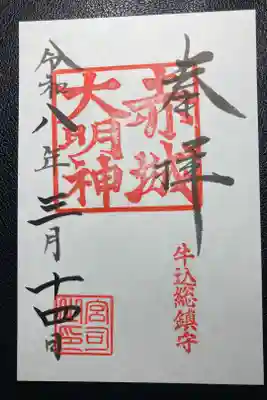 奉拝
牛込総鎮守
赤城
大明神
令和八年三月十四日
宮司
之印